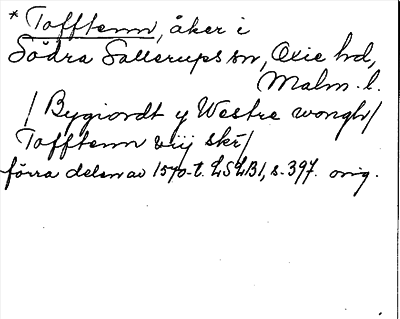 * Tofftenn, åker i
Södra Sallerups sn, Oxie hd,
Malm. l.
/ Bygiordt y Westre wongh/
Tofftenn viij skr/
förra delen av 1570-t. LSLB1, s. 397. orig.